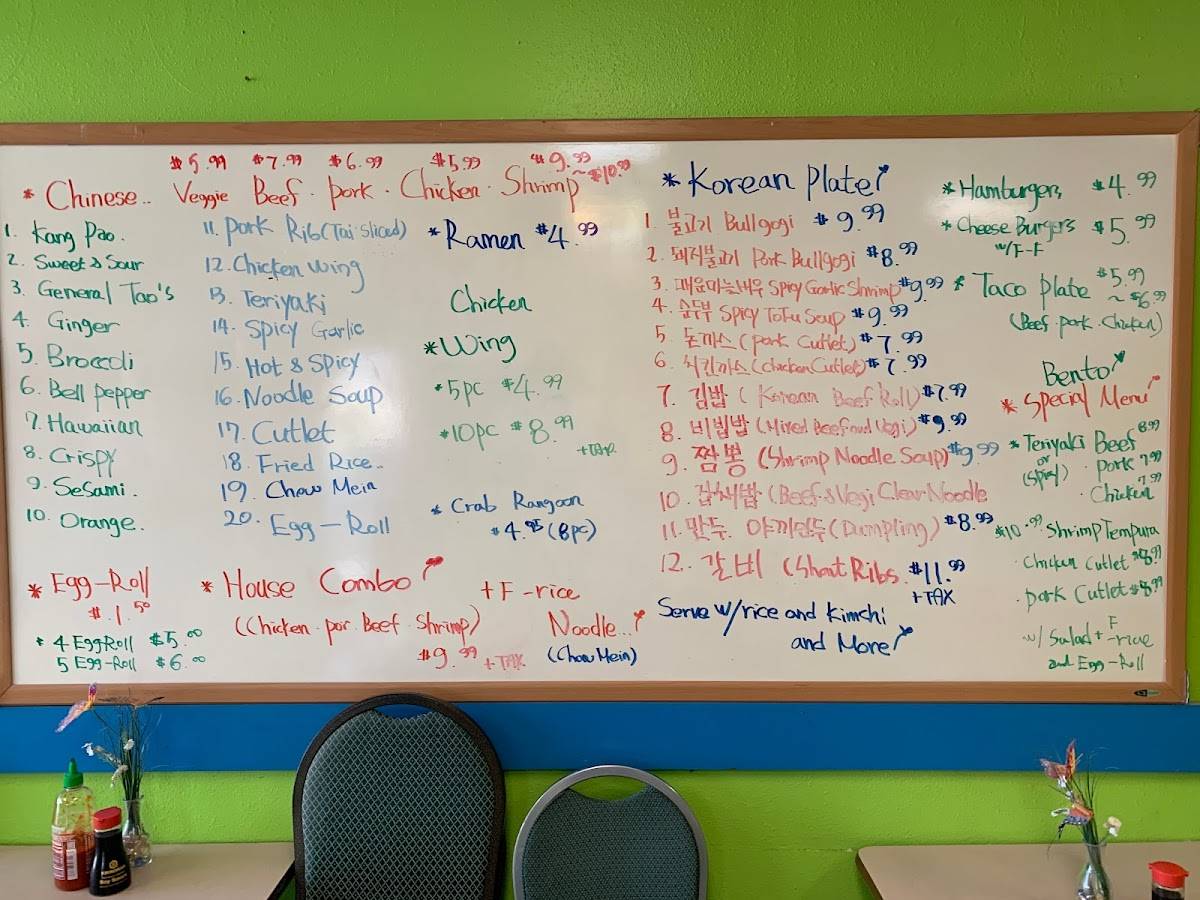 $5.99 $7.99 $6.99 $5.99 $9.99 ~ $10.99
* Chinese.. Veggie Beef · pork · Chicken · Shrimp
1. Kang Pao.
2. Sweet & Sour
3. General Tao's
4. Ginger
5. Broccoli
6. Bell pepper
7. Hawaiian
8. Crispy
9. Sesami.
10. Orange.
11. Pork Rib (Tai·Sliced)
12. Chicken Wing
13. Teriyaki
14. Spicy Garlic
15. Hot & Spicy
16. Noodle Soup
17. Cutlet
18. Fried Rice..
19. Chow Mein
20. Egg-Roll
* Ramen $4.99
Chicken
* Wing
*5pc $4.99
*10pc $8.99
+TAX
* Crab Rangoon
$4.95 (8pc)
* Egg-Roll
$1.50
* 4 EggRoll $5.00
5 Egg-Roll $6.00
* House Combo! + F-rice
(Chicken · por. Beef · Shrimp) Noodle...!
$9.99 +TAX (Chow Mein)
* Korean Plate!
1. 불고기 Bullgogi $9.99
2. 돼지불고기 Pork Bullgogi $8.99
3. 매운마늘새우 Spicy Garlic Shrimp $9.99
4. 순두부 Spicy Tofu Soup $9.99
5. 돈까스 (Pork Cutlet) $7.99
6. 치킨까스 (Chicken Cutlet) $7.99
7. 김밥 (Korean Beef Roll) $7.99
8. 비빔밥 (Mixed Beef and Vegi) $9.99
9. 짬뽕 (Shrimp Noodle Soup) $9.99
10. (Beef & Vegi Clear Noodle
11. 만두. 야끼만두 (Dumpling) $8.99
12. 갈비 (Short Ribs. $11.99
+TAX
Serve w/rice and Kimchi
and More!
* Hamburgers $4.99
* Cheese Burgers $5.99
w/F-F
* Taco plate $5.99
~$6.99
(Beef · pork · Chicken)
Bento!
* Special Menu!
* Teriyaki Beef 8.99
(or Spicy) · Pork 7.99
· Chicken 7.99
$10.99 Shrimp Tempura
· Chicken Cutlet $8.99
· Pork Cutlet $8.99
w/ Salad + F-rice
and Egg-Roll